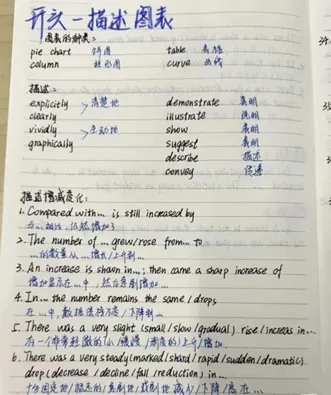 开头一描述图表
图表的种类:
pie chart 饼图 table 表格
column 柱形图 curve 曲线
描述:
explicitly 清楚地 demonstrate 表明
clearly illustrate 说明
vividly 生动地 show 表明
graphically suggest 表明
describe 描述
convey 传递
描述增减变化:
1. Compared with... is still increased by
与...相比,仍然增加了
2. The number of ... grew/rose from... to
...的数量从...增长/上升到...
3. An increase is shown in...; then came a sharp increase of
增加显示在...中,然后急剧增加...
4. In... the number remains the same/drops
在...中,数据保持不变/下降到...
5. There was a very slight (small/slow/gradual) rise/increas in...
有一个非常轻微的(小/缓慢/渐在的)上升/增加
6. There was a very steady(marked/sharp/rapid/sudden/dramatic)
drop (decrease/decline/fall/reduction) in...
减少/下降
34.
35
3